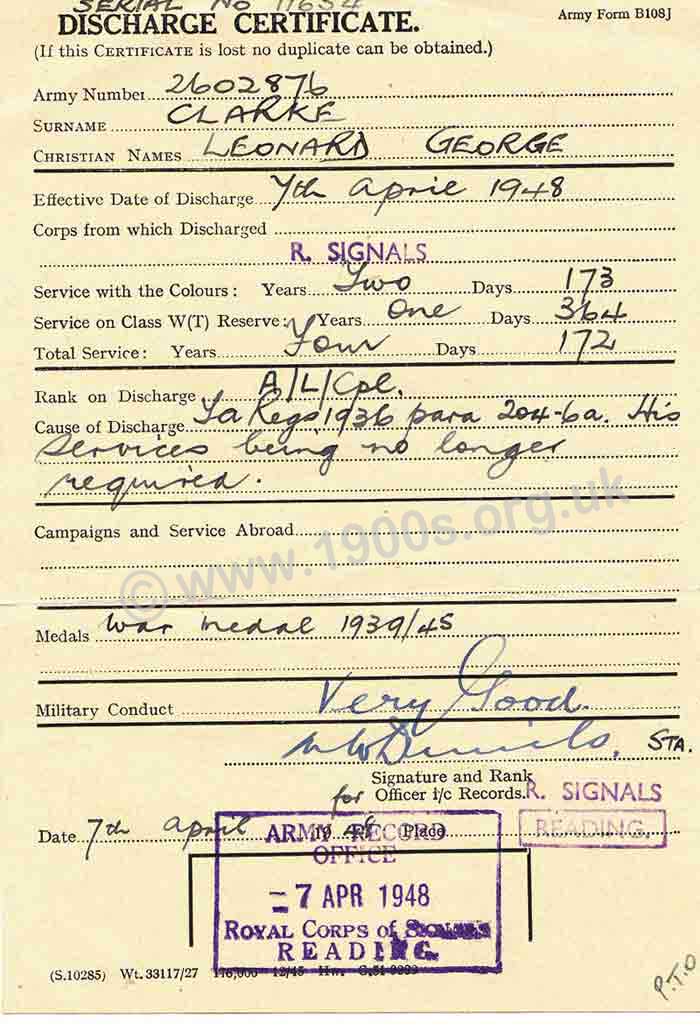 SERIAL No 11654
DISCHARGE CERTIFICATE.
Army Form B108J
(If this CERTIFICATE is lost no duplicate can be obtained.)
Army Number 2602876
SURNAME CLARKE
CHRISTIAN NAMES LEONARD GEORGE
Effective Date of Discharge 7th April 1948
Corps from which Discharged
R. SIGNALS
Service with the Colours: Years Two Days 173
Service on Class W(T) Reserve: Years One Days 364
Total Service: Years Four Days 172
Rank on Discharge A/L/Cpl.
Cause of Discharge Ta Regs 1936 para 204-6a. His
services being no longer
required.
Campaigns and Service Abroad
©www.1900s.org.uk
Medals War medal 1939/45
Military Conduct Very Good.
STA.
Signature and Rank
for Officer i/c Records.
R. SIGNALS
READING.
Date 7th April 1948 Place
ARMY RECORD
OFFICE
-7 APR 1948
ROYAL CORPS of SIGNALS
READING.
(S.10285) Wt. 33117/27 12/45
P.T.O